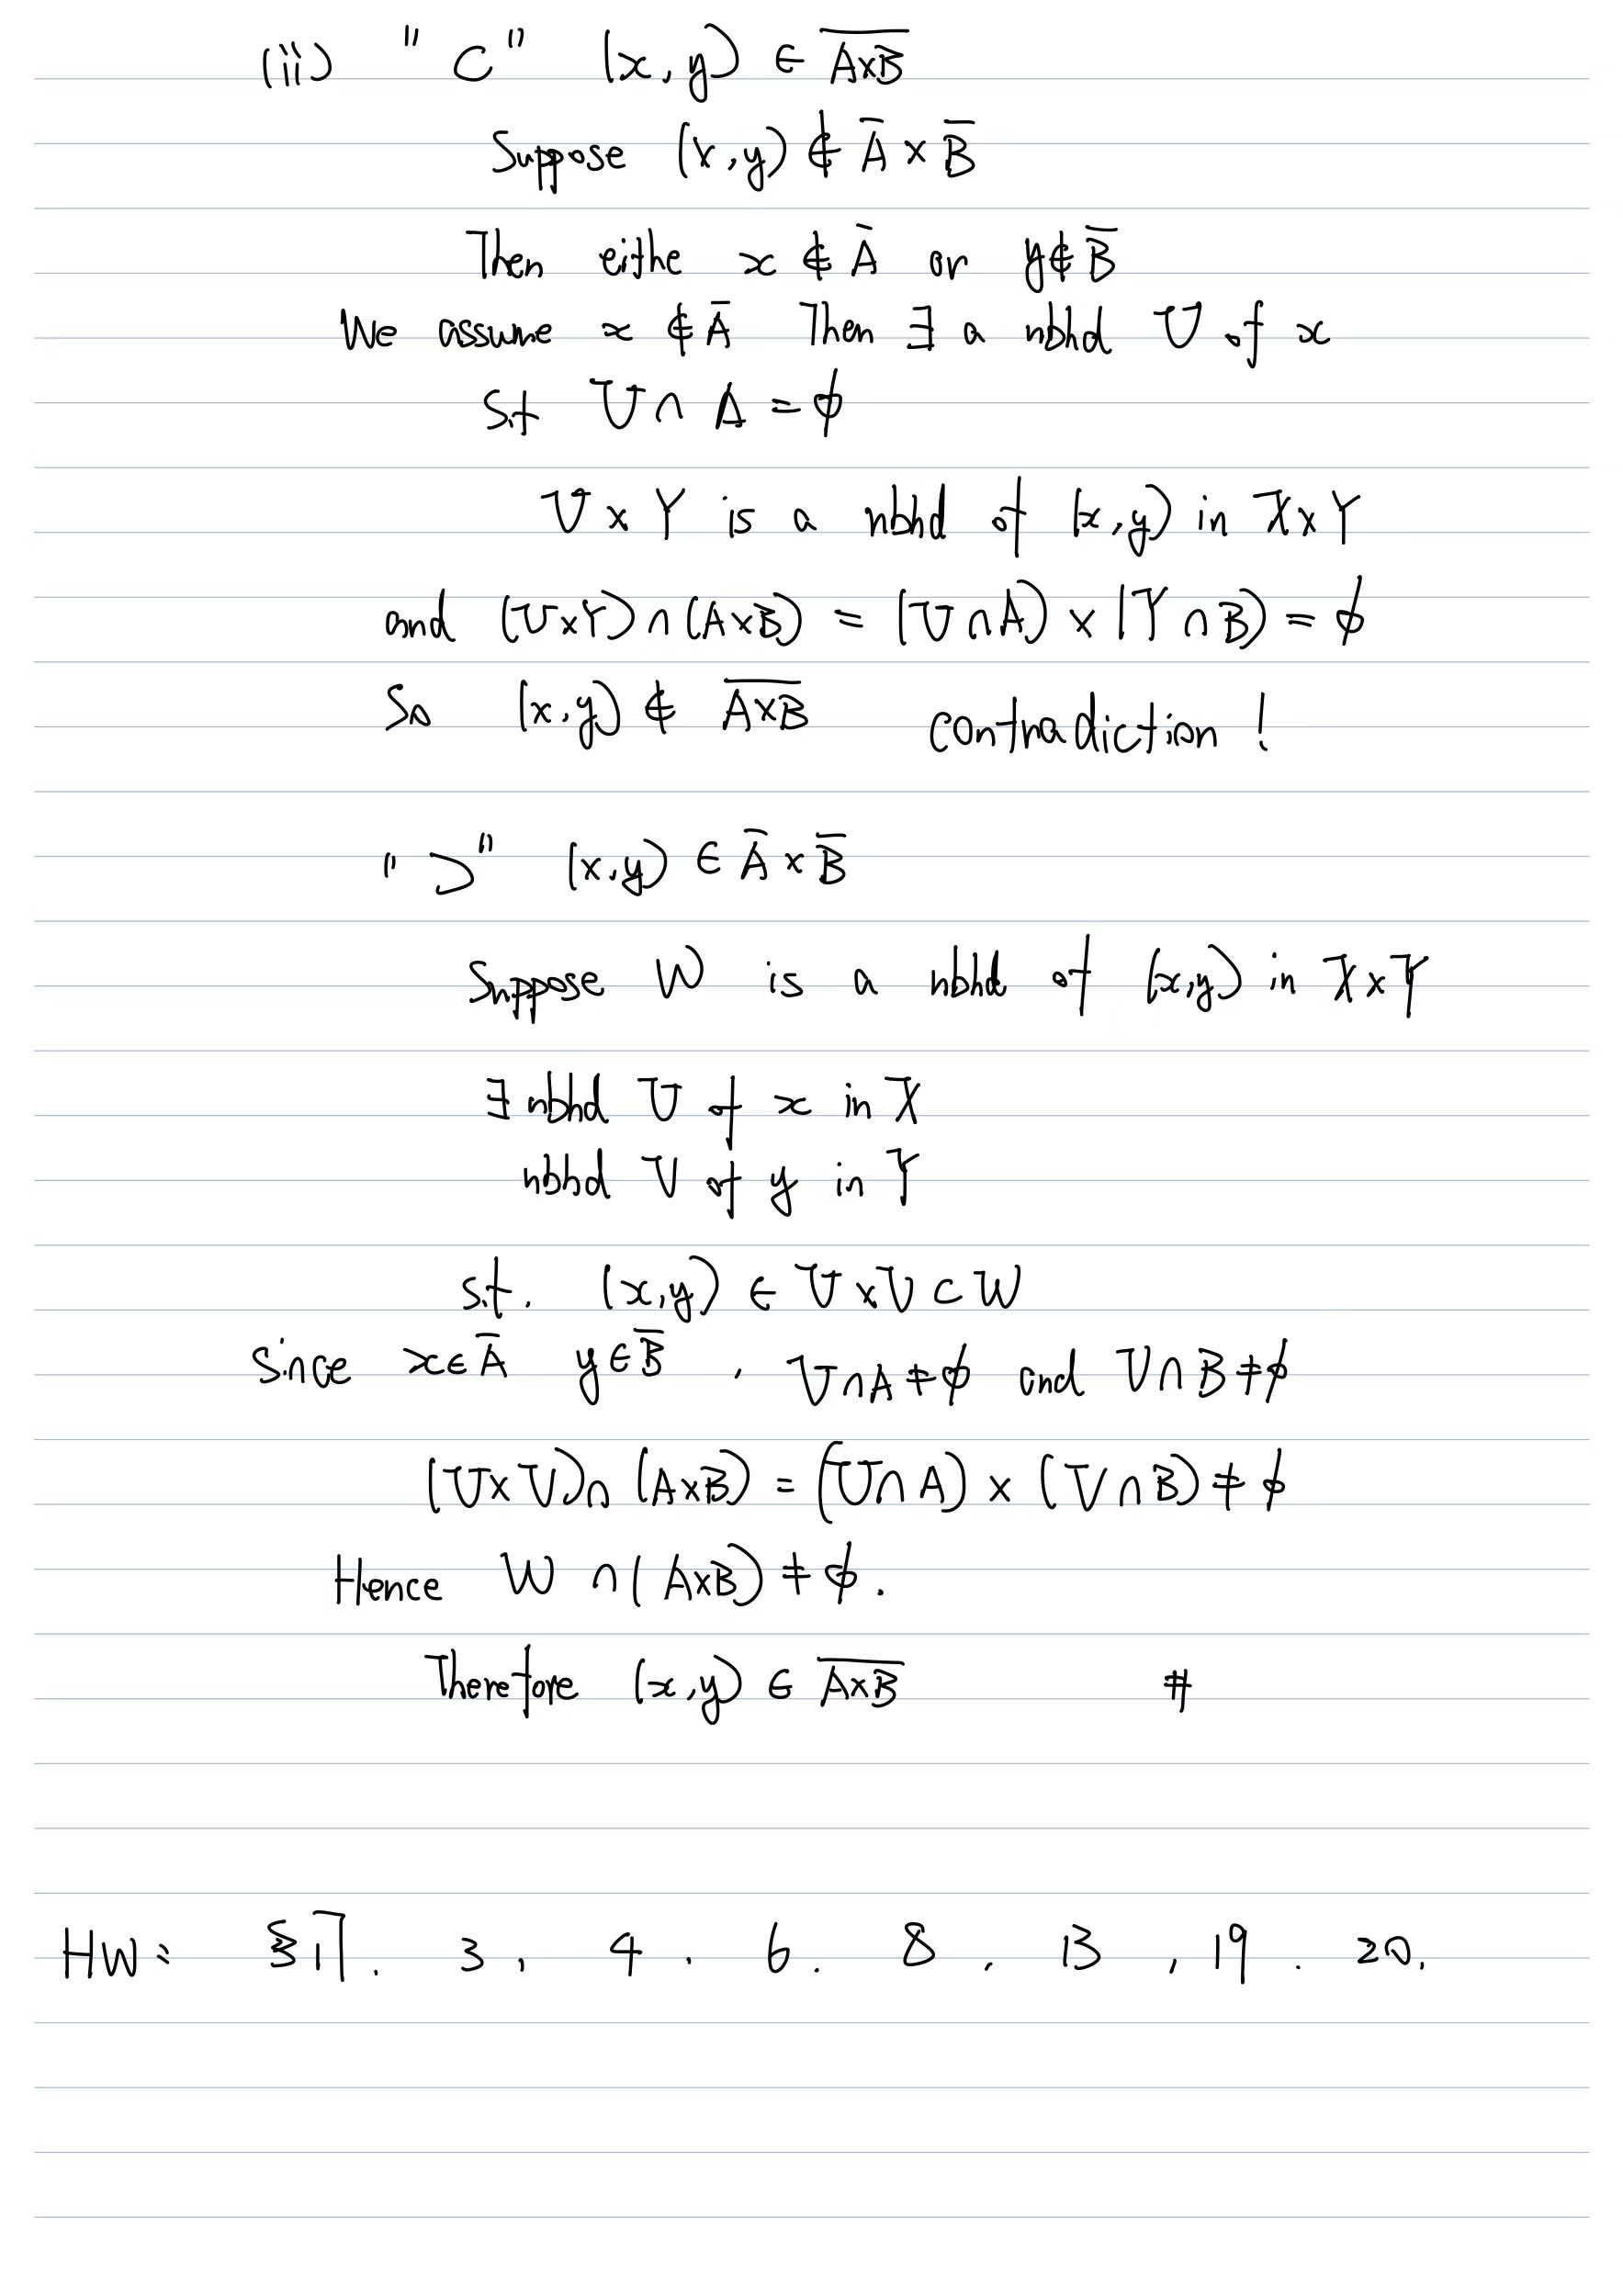 (ii) "⊂" (x,y) ∈ \overline{A×B}
Suppose (x,y) ∉ Ā × B̄
Then eithe x ∉ Ā or y ∉ B̄
We assume x ∉ Ā Then ∃ a nbhd U of x
S.t U ∩ A = ϕ
U × Y is a nbhd of (x,y) in X×Y
and (U×Y)∩(A×B) = (U∩A) × (Y∩B) = ϕ
So (x,y) ∉ \overline{A×B} contradiction !
"⊃" (x,y) ∈ Ā × B̄
Suppose W is a nbhd of (x,y) in X×Y
∃ nbhd U of x in X
nbhd V of y in Y
s.t. (x,y) ∈ U×V ⊂ W
Since x∈Ā y∈B̄ , U∩A ≠ ϕ and V∩B ≠ ϕ
(U×V)∩(A×B) = (U∩A) × (V∩B) ≠ ϕ
Hence W ∩ (A×B) ≠ ϕ.
Therefore (x,y) ∈ \overline{A×B} #
HW: §17. 3, 4. 6. 8, 13, 19. 20.